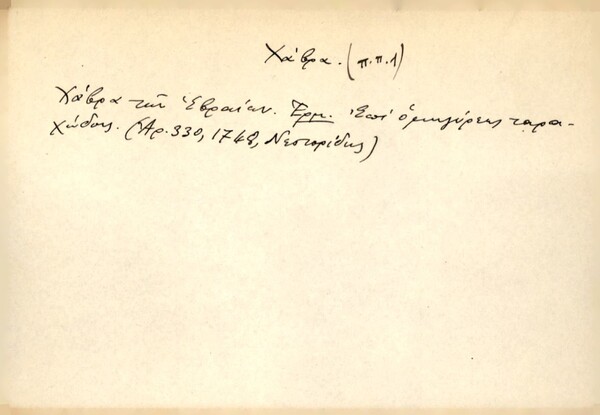 Χάβρα. (π.π.1)
Χάβρα τῶν Ἑβραίων. Ἑρμ. Ἐπὶ ὁμηγύρεως ταρα-
χώδους. (Ἀρ. 330, 1748, Νεστορίδης)